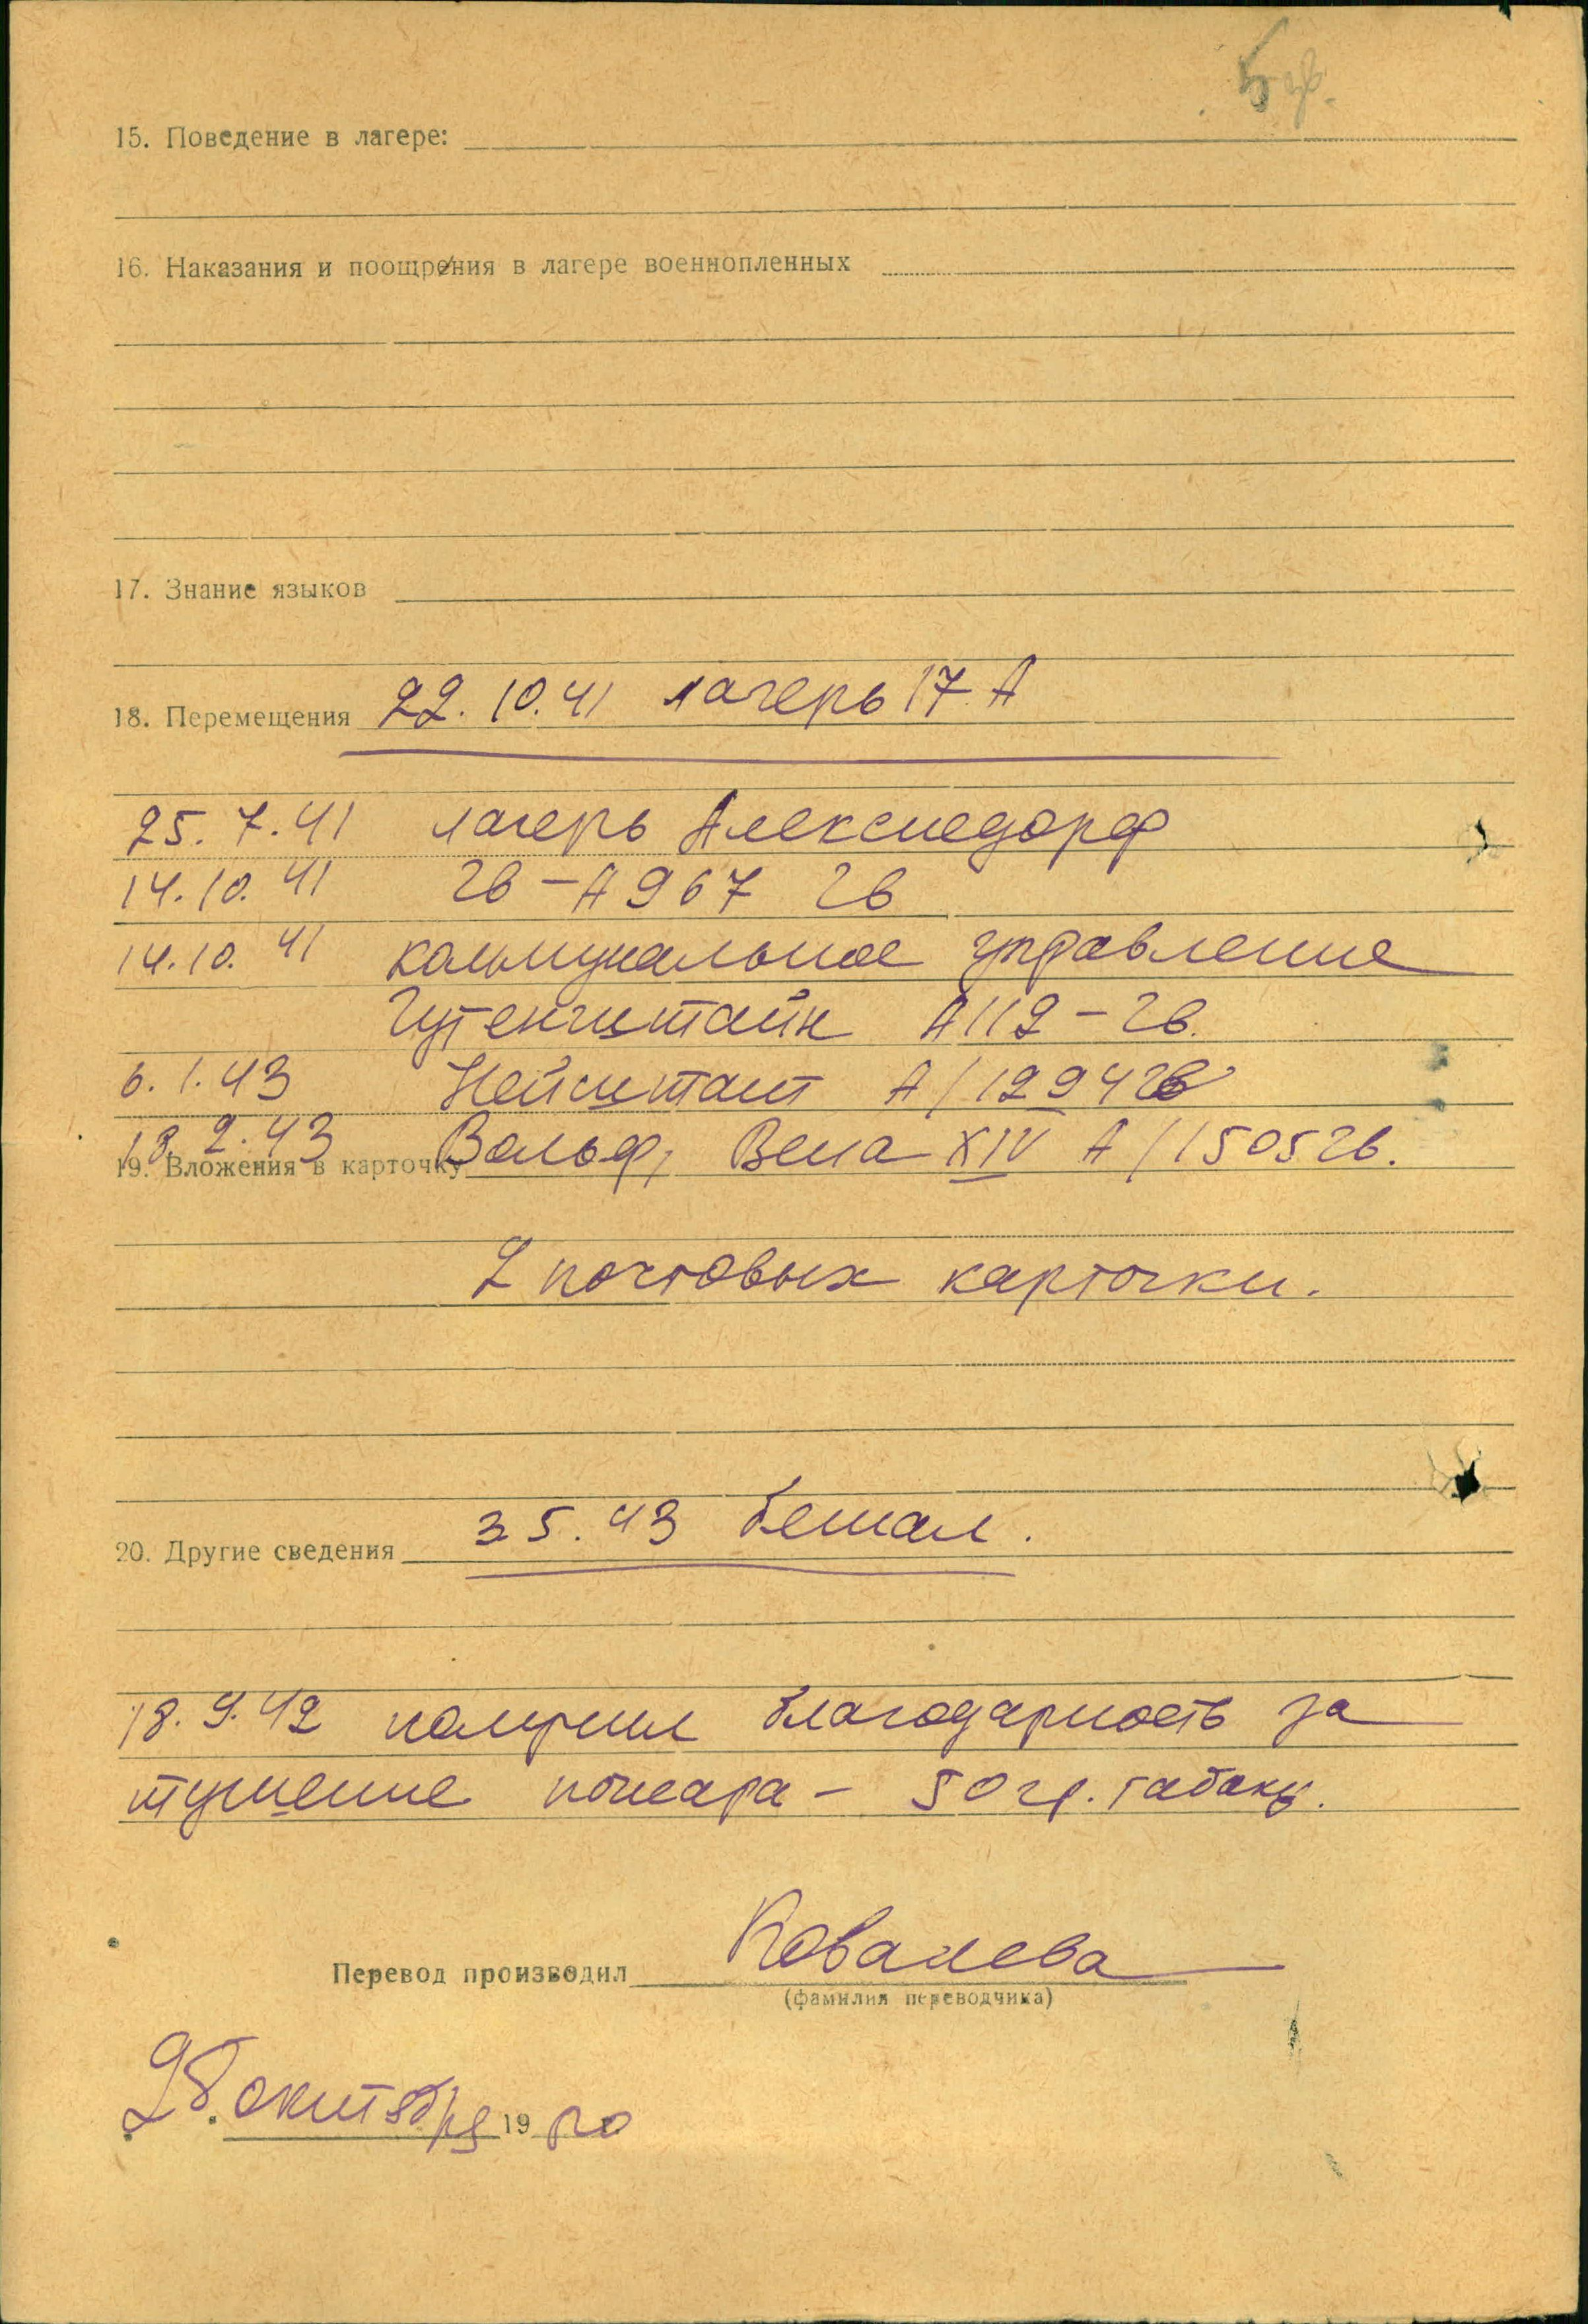 15. Поведение в лагере:
16. Наказания и поощрения в лагере военнопленных
17. Знание языков
18. Перемещения 22.10.41 лагерь 17 А
25.7.41 лагерь Алексисдорф
14.10.41 2в-А 967 2в
14.10.41 коммунальное управление
Гутенштайн А 112-2в.
6.1.43 А/1294 2в
13.2.43 Вольф, Вена XIV А/1505 2в.
19. Вложения в карточку
2 почтовых карточки.
20. Другие сведения 3.5.43 бежал.
18.9.42 получил благодарность за
тушение пожара - 50 гр. табаку.
Перевод производил Ковалева
(фамилия переводчика)
октября 19